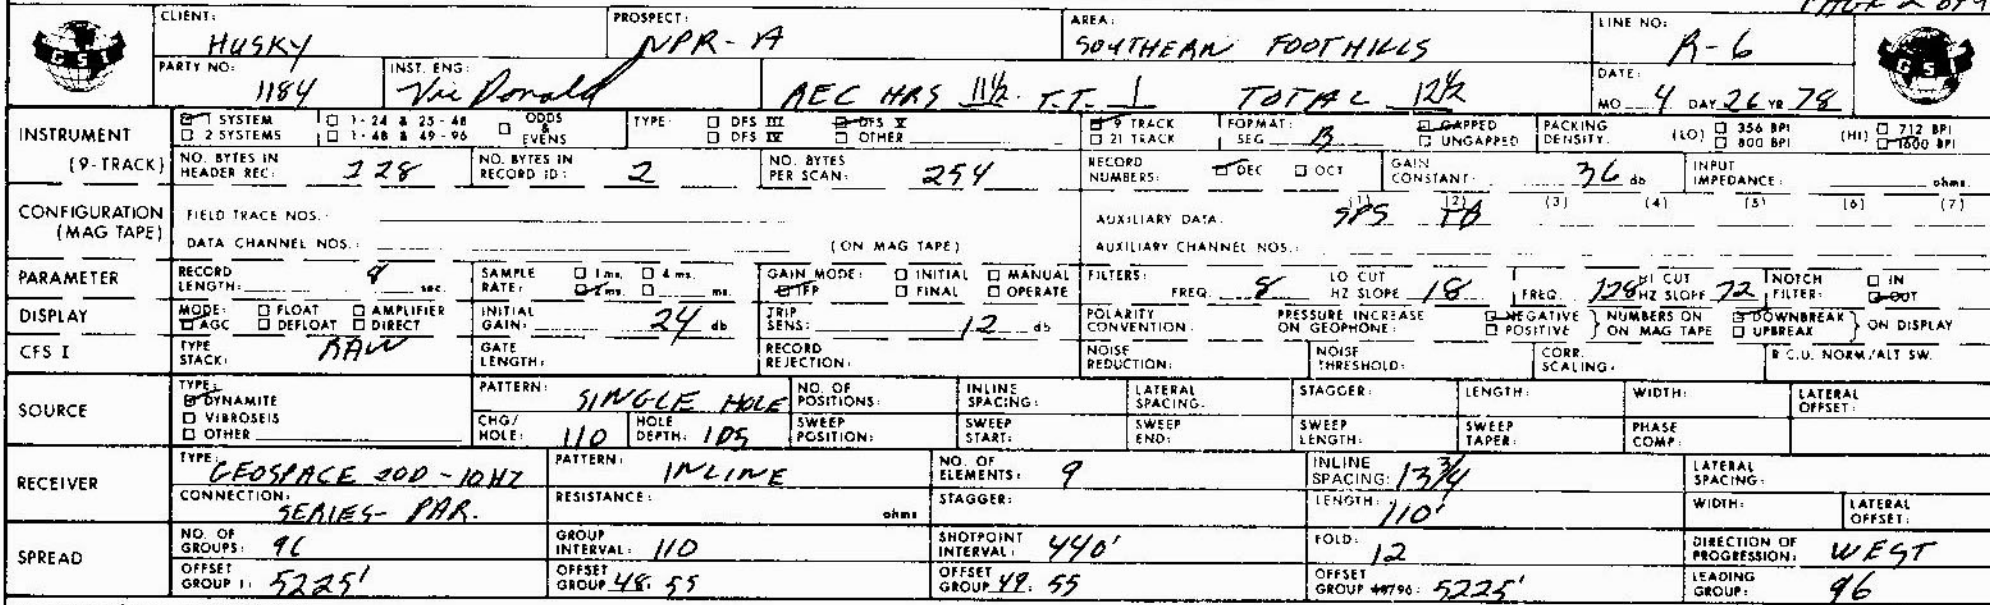 PAGE 2 OF 9
CLIENT: HUSKY PROSPECT: NPR-A AREA: SOUTHERN FOOTHILLS LINE NO: R-6
GSI GSI
PARTY NO: 1184 INST. ENG: Vic Donald REC HRS 11½ T.T. 1 TOTAL 12½ DATE: MO 4 DAY 26 YR 78
INSTRUMENT (9-TRACK)
1 SYSTEM 1-24 & 25-48 ODDS & EVENS TYPE: DFS III DFS V 9 TRACK FORMAT: GAPPED PACKING DENSITY: (LO) 356 BPI (HI) 712 BPI
2 SYSTEMS 1-48 & 49-96 DFS IV OTHER 21 TRACK SEG B UNGAPPED 800 BPI 1600 BPI
NO. BYTES IN HEADER REC: 228 NO. BYTES IN RECORD ID: 2 NO. BYTES PER SCAN: 254 RECORD NUMBERS: DEC OCT GAIN CONSTANT: 36 db INPUT IMPEDANCE: ohms.
CONFIGURATION (MAG TAPE)
FIELD TRACE NOS. AUXILIARY DATA: (1) SPS (2) TB (3) (4) (5) (6) (7)
DATA CHANNEL NOS.: (ON MAG TAPE) AUXILIARY CHANNEL NOS.:
PARAMETER RECORD LENGTH: 8 sec. SAMPLE RATE: 1 ms. 4 ms. 2 ms. ms. GAIN MODE: INITIAL MANUAL IFP FINAL OPERATE FILTERS: FREQ 8 LO CUT HZ SLOPE 18 FREQ 128 HI CUT HZ SLOPE 72 NOTCH FILTER: IN OUT
DISPLAY MODE: FLOAT AMPLIFIER AGC DEFLOAT DIRECT INITIAL GAIN: 24 db TRIP SENS: 12 db POLARITY CONVENTION: PRESSURE INCREASE ON GEOPHONE: NEGATIVE POSITIVE NUMBERS ON ON MAG TAPE DOWNBREAK UPBREAK ON DISPLAY
CFS I TYPE STACK: RAW GATE LENGTH: RECORD REJECTION: NOISE REDUCTION: NOISE THRESHOLD: CORR. SCALING: R.C.U. NORM/ALT SW.
SOURCE
TYPE: DYNAMITE VIBROSEIS OTHER
PATTERN: SINGLE HOLE NO. OF POSITIONS: INLINE SPACING: LATERAL SPACING: STAGGER: LENGTH: WIDTH: LATERAL OFFSET:
CHG/HOLE: 110 HOLE DEPTH: 105 SWEEP POSITION: SWEEP START: SWEEP END: SWEEP LENGTH: SWEEP TAPER: PHASE COMP:
RECEIVER
TYPE: GEOSPACE 20D-10HZ PATTERN: INLINE NO. OF ELEMENTS: 9 INLINE SPACING: 13 3/4 LATERAL SPACING:
CONNECTION: SERIES-PAR. RESISTANCE: ohms STAGGER: LENGTH: 110' WIDTH: LATERAL OFFSET:
SPREAD
NO. OF GROUPS: 96 GROUP INTERVAL: 110 SHOTPOINT INTERVAL: 440' FOLD: 12 DIRECTION OF PROGRESSION: WEST
OFFSET GROUP 1: 5225' OFFSET GROUP 48: 55 OFFSET GROUP 49: 55 OFFSET GROUP 48/96: 5225' LEADING GROUP: 96